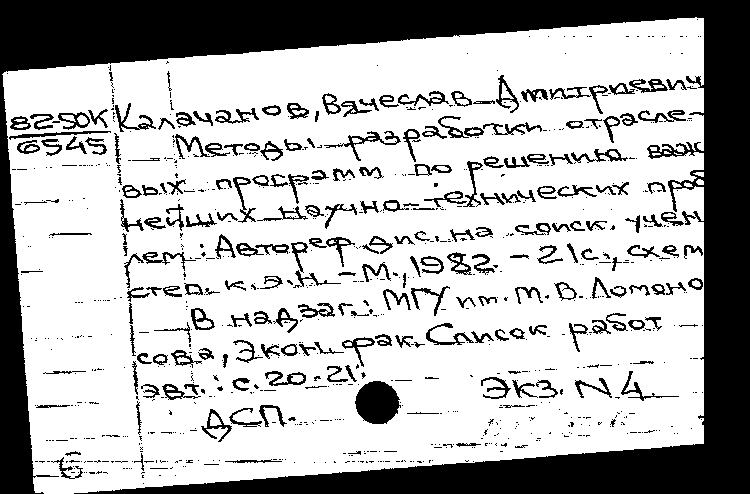 82-50К Калачанов, Вячеслав Дмитриевич
6545 Методы разработки отрасле-
вых программ по решению важ
нейших научно-технических проб
лем: Автореф дис. на соиск. учен
степ. к.э.н. - М., 1982. - 21с., схем
В надзаг.: МГУ им. М.В. Ломоно
сова, Экон. фак. Список работ
авт.: с. 20-21.
ДСП. Экз. N 4.
6